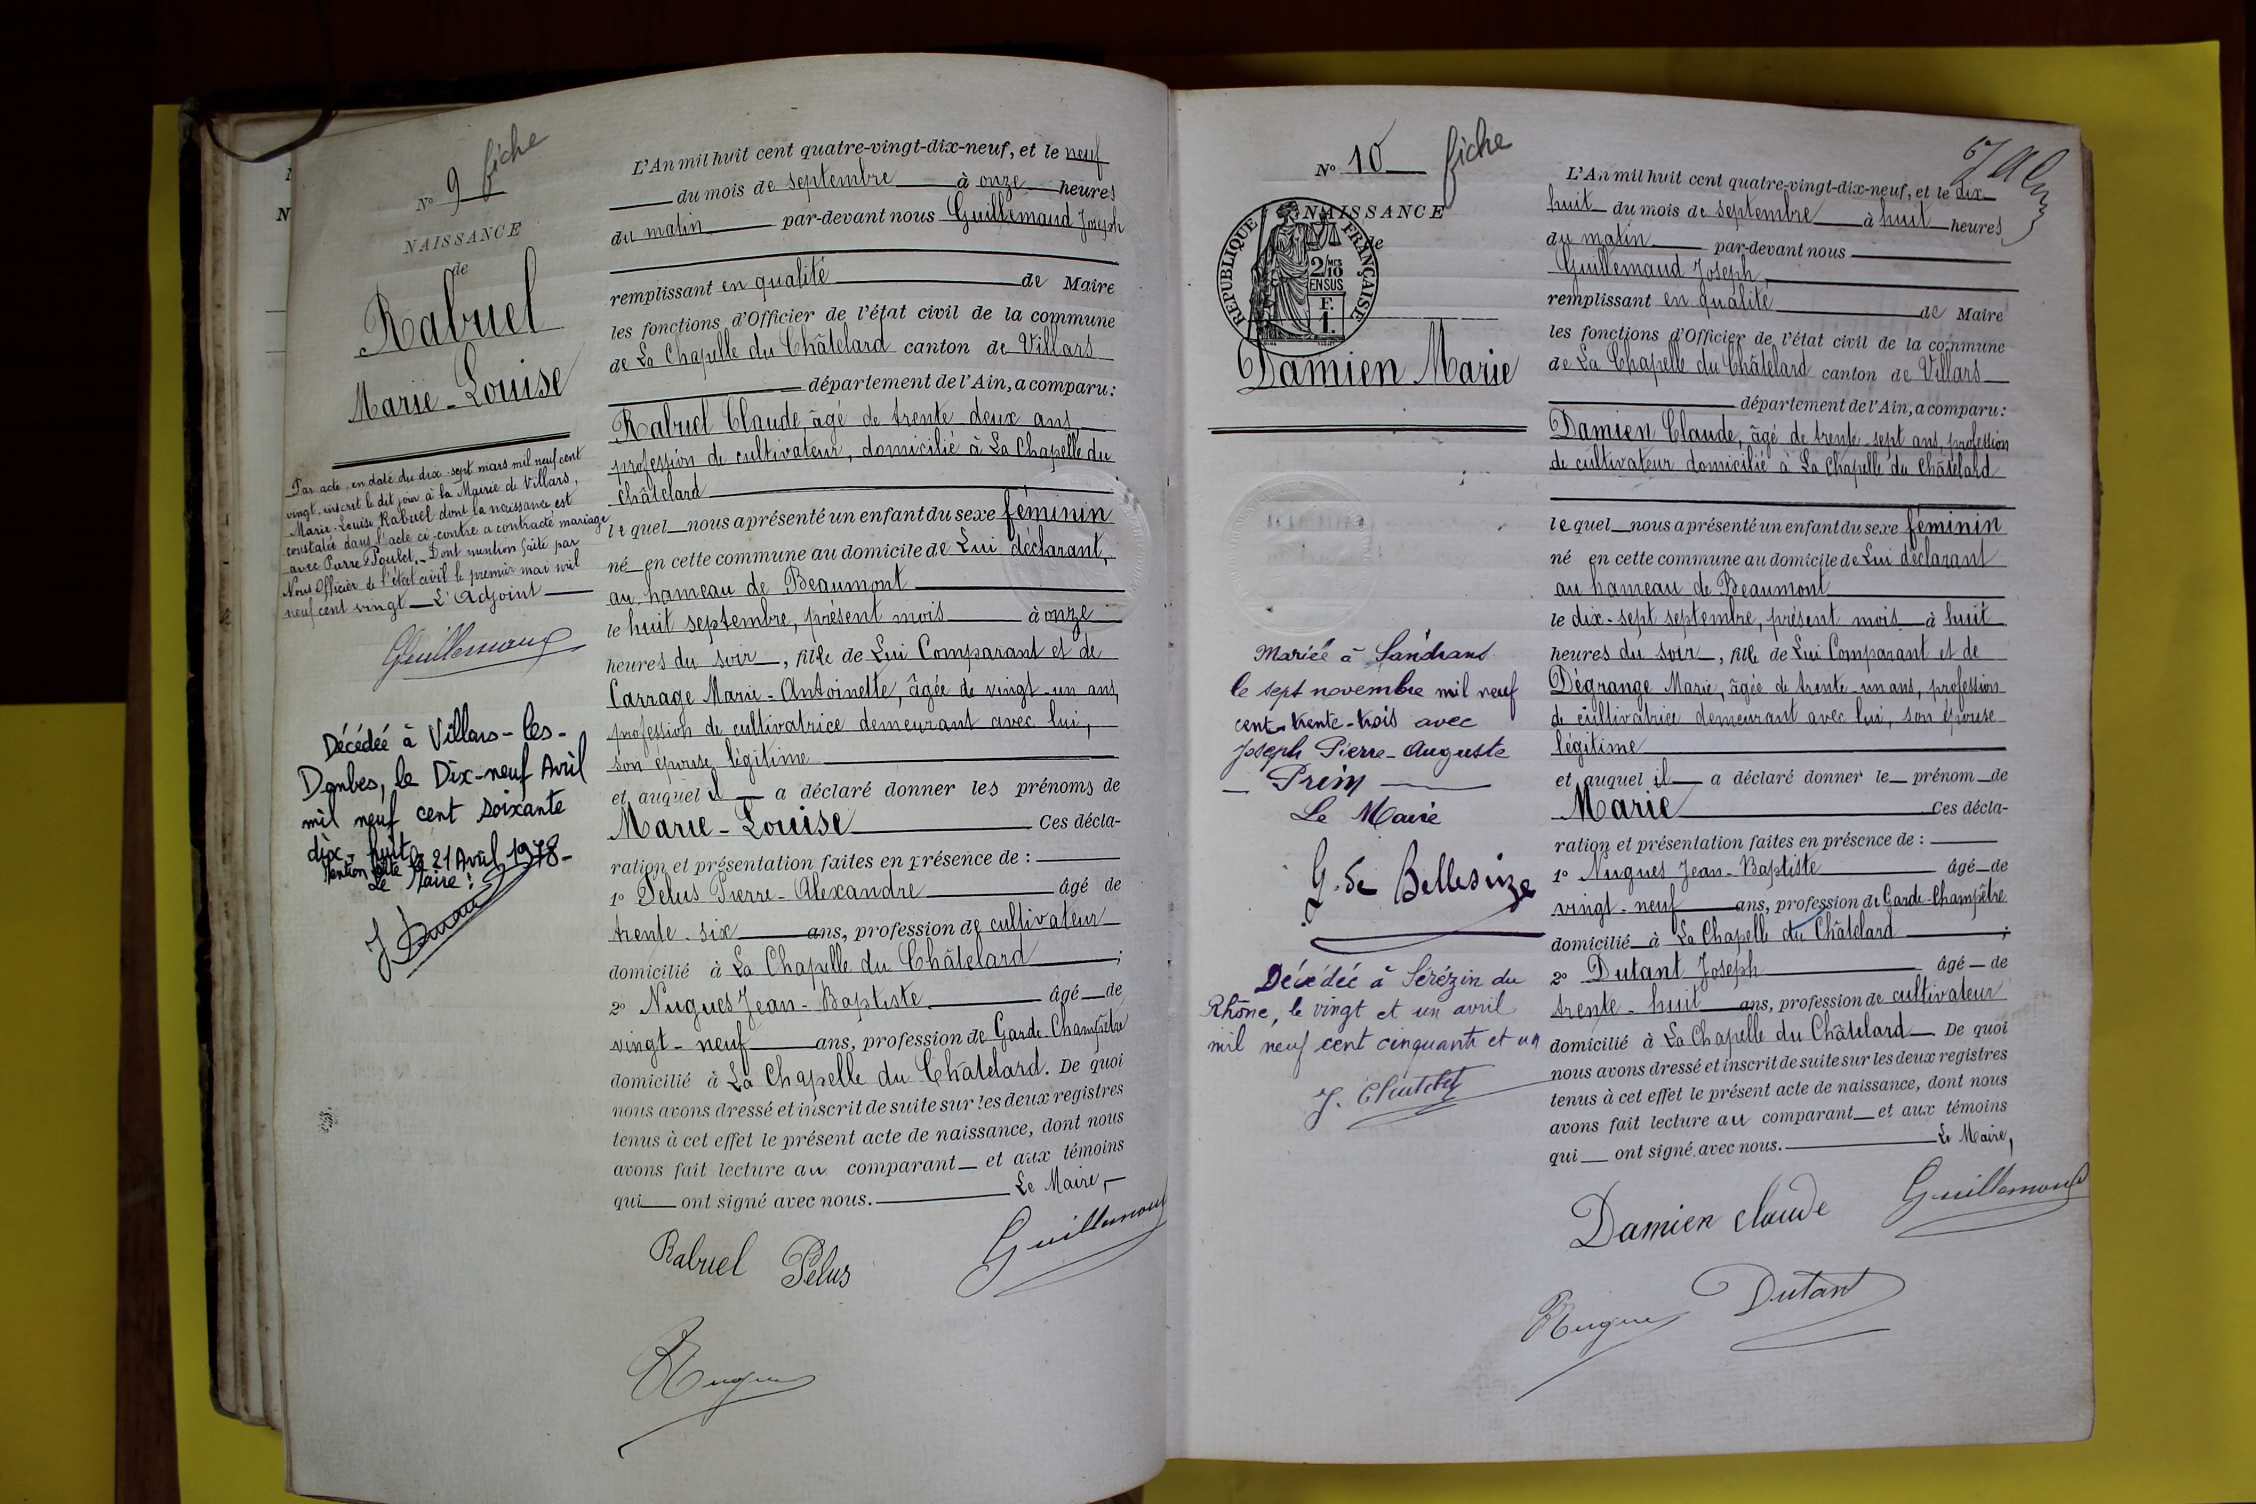 N° 9 fiche
NAISSANCE
de
Rabuel
Marie-Louise
Par acte, en date du dix-sept mars mil neuf cent
vingt, inscrit le dit jour à la Mairie de Villars,
Marie-Louise Rabuel dont la naissance est
constatée dans l'acte ci-contre a contracté mariage
avec Pierre Poulet. Dont mention faite par
Nous Officier de l'état civil le premier mai mil
neuf cent vingt — L'Adjoint —
Guillemaud
Décédée à Villars-les-
Dombes, le Dix-neuf Avril
mil neuf cent soixante
dix-huit
Mention faite le 21 Avril 1978-
Le Maire:
L'An mil huit cent quatre-vingt-dix-neuf, et le neuf
du mois de septembre à onze heures
du matin par-devant nous Guillemaud Joseph
remplissant en qualité de Maire
les fonctions d'Officier de l'état civil de la commune
de La Chapelle du Châtelard canton de Villars
département de l'Ain, a comparu:
Rabuel Claude, âgé de trente deux ans
profession de cultivateur, domicilié à La Chapelle du
Châtelard
lequel nous a présenté un enfant du sexe féminin
né en cette commune au domicile de Lui déclarant,
au hameau de Beaumont
le huit septembre, présent mois à onze
heures du soir, fille de Lui Comparant et de
Carrage Marie-Antoinette, âgée de vingt-un ans,
profession de cultivatrice demeurant avec lui,
son épouse légitime
et auquel il a déclaré donner les prénoms de
Marie-Louise Ces décla-
ration et présentation faites en présence de :
1° Pelus Pierre-Alexandre âgé de
trente-six ans, profession de cultivateur
domicilié à La Chapelle du Châtelard ;
2° Nugues Jean-Baptiste âgé de
vingt-neuf ans, profession de Garde-Champêtre
domicilié à La Chapelle du Châtelard. De quoi
nous avons dressé et inscrit de suite sur les deux registres
tenus à cet effet le présent acte de naissance, dont nous
avons fait lecture au comparant et aux témoins
qui ont signé avec nous. Le Maire,
Rabuel Pélus Guillemaud
Nugues
N° 10 fiche
NAISSANCE
de
REPUBLIQUE FRANÇAISE
2/10 MES
EN SUS
F.
1.
Damien Marie
Mariée à Sandrans
le sept novembre mil neuf
cent-trente-trois avec
Joseph Pierre-Auguste
Prin
Le Maire
G. de Bellesize
Décédée à Sérézin du
Rhône, le vingt et un avril
mil neuf cent cinquante et un
L'An mil huit cent quatre-vingt-dix-neuf, et le dix-
huit du mois de septembre à huit heures
du matin par-devant nous
Guillemaud Joseph
remplissant en qualité de Maire
les fonctions d'Officier de l'état civil de la commune
de La Chapelle du Châtelard canton de Villars
département de l'Ain, a comparu:
Damien Claude, âgé de trente-sept ans, profession
de cultivateur domicilié à La Chapelle du Châtelard
lequel nous a présenté un enfant du sexe féminin
né en cette commune au domicile de Lui déclarant
au hameau de Beaumont
le dix-sept septembre, présent mois à huit
heures du soir, fille de Lui Comparant et de
Dégrange Marie, âgée de trente-un ans, profession
de cultivatrice demeurant avec lui, son épouse
légitime
et auquel il a déclaré donner le prénom de
Marie Ces décla-
ration et présentation faites en présence de :
1° Nugues Jean-Baptiste âgé de
vingt-neuf ans, profession de Garde-Champêtre
domicilié à La Chapelle du Châtelard ;
2° Dutant Joseph âgé de
trente-huit ans, profession de cultivateur
domicilié à La Chapelle du Châtelard De quoi
nous avons dressé et inscrit de suite sur les deux registres
tenus à cet effet le présent acte de naissance, dont nous
avons fait lecture au comparant et aux témoins
qui ont signé avec nous. Le Maire,
Damien Claude Guillemaud
Nugues Dutant